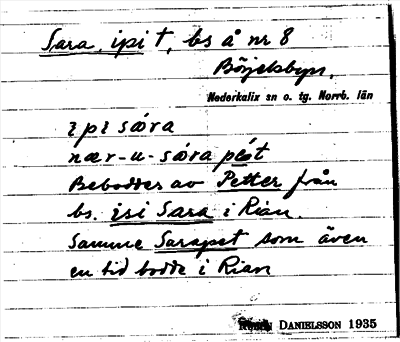 Sara, ipi t, bs å nr 8
Böjelsbyn,
Nederkalix sn o. tg. Norrb. län
ɪpɪ sára
nær-u-sára pét
Beboddes av Petter från
bs. isi Sara i Rian.
Samme Sarapet som även
en tid bodde i Rian
DANIELSSON 1935